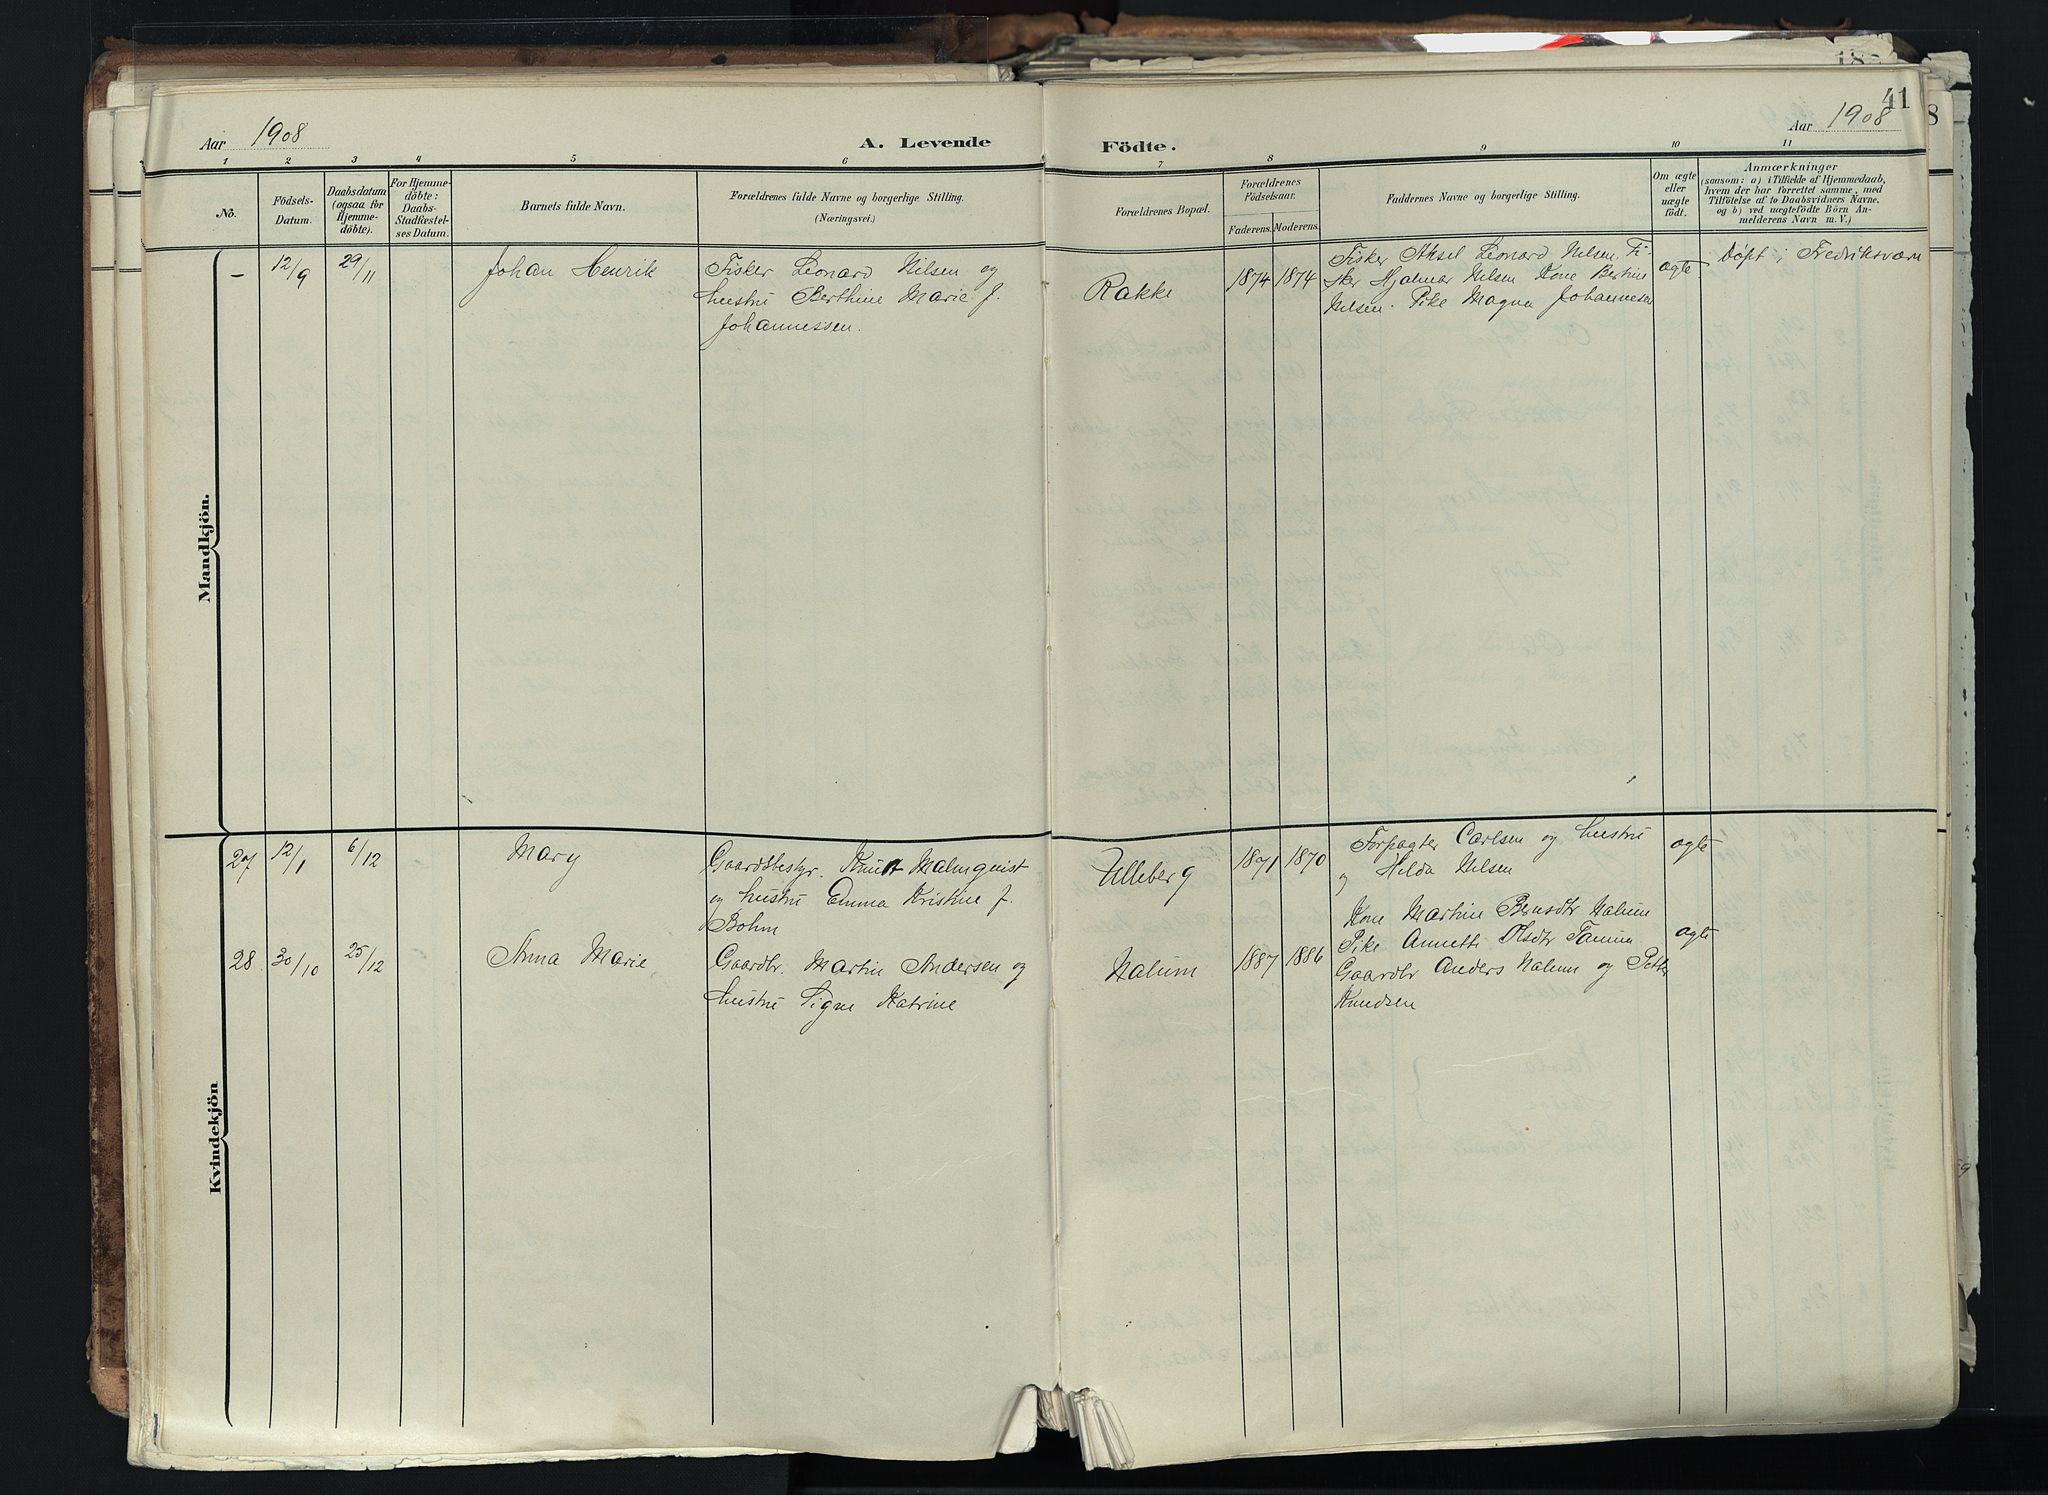 41
Aar 1908 A. Levende Födte. Aar 1908
1 2 3 4 5 6 7 8 9 10 11
No.
Födsels-
Datum.
Daabsdatum
(ogsaa for
Hjemme-
döbte).
For Hjemme-
döbte:
Daabs-
Stadfæstel-
ses Datum.
Barnets fulde Navn.
Forældrenes fulde Navne og borgerlige Stilling.
(Næringsvei.)
Forældrenes Bopæl.
Forældrenes
Födselsaar.
Faderens. Moderens.
Faddernes Navne og borgerlige Stilling.
Om ægte
eller
uægte
födt.
Anmærkninger
(saasom: a) i Tilfælde af Hjemmedaab,
hvem der har forrettet samme, med
Tilföielse af to Daabsvidners Navne,
og b) ved uægtefödte Börn An-
melderens Navn m. V.)
Mandkjön.
– 12/9 29/11 Johan Henrik
Fisker Leonard Nilsen og
hustru Berthine Marie f.
Johannessen.
Rakke 1874 1874
Fisker Aksel Leonard Nilsen. Fi-
sker Hjalmar Nilsen Kone Bertine
Nilsen. Pike Magna Johannesen
ægte
Døpt i Fredriksværn
Kvindekjön
27 12/1 6/12 Mary
Gaardsbestyr. Knut Malmquist
og hustru Emma Kristine f.
Bohm
Ulleberg 1871 1870
Forpagter Carlsen og hustru
og Hilda Nilsen
ægte
28 30/10 25/12 Anna Marie
Gaardbr. Martin Andersen og
hustru Signe Katrine
Nalum 1887 1886
Kone Martine Berntsdtr Nalum
Pike Annetti Olsdtr
Gaardbr Anders Nalum og Petter
Knudsen
ægte